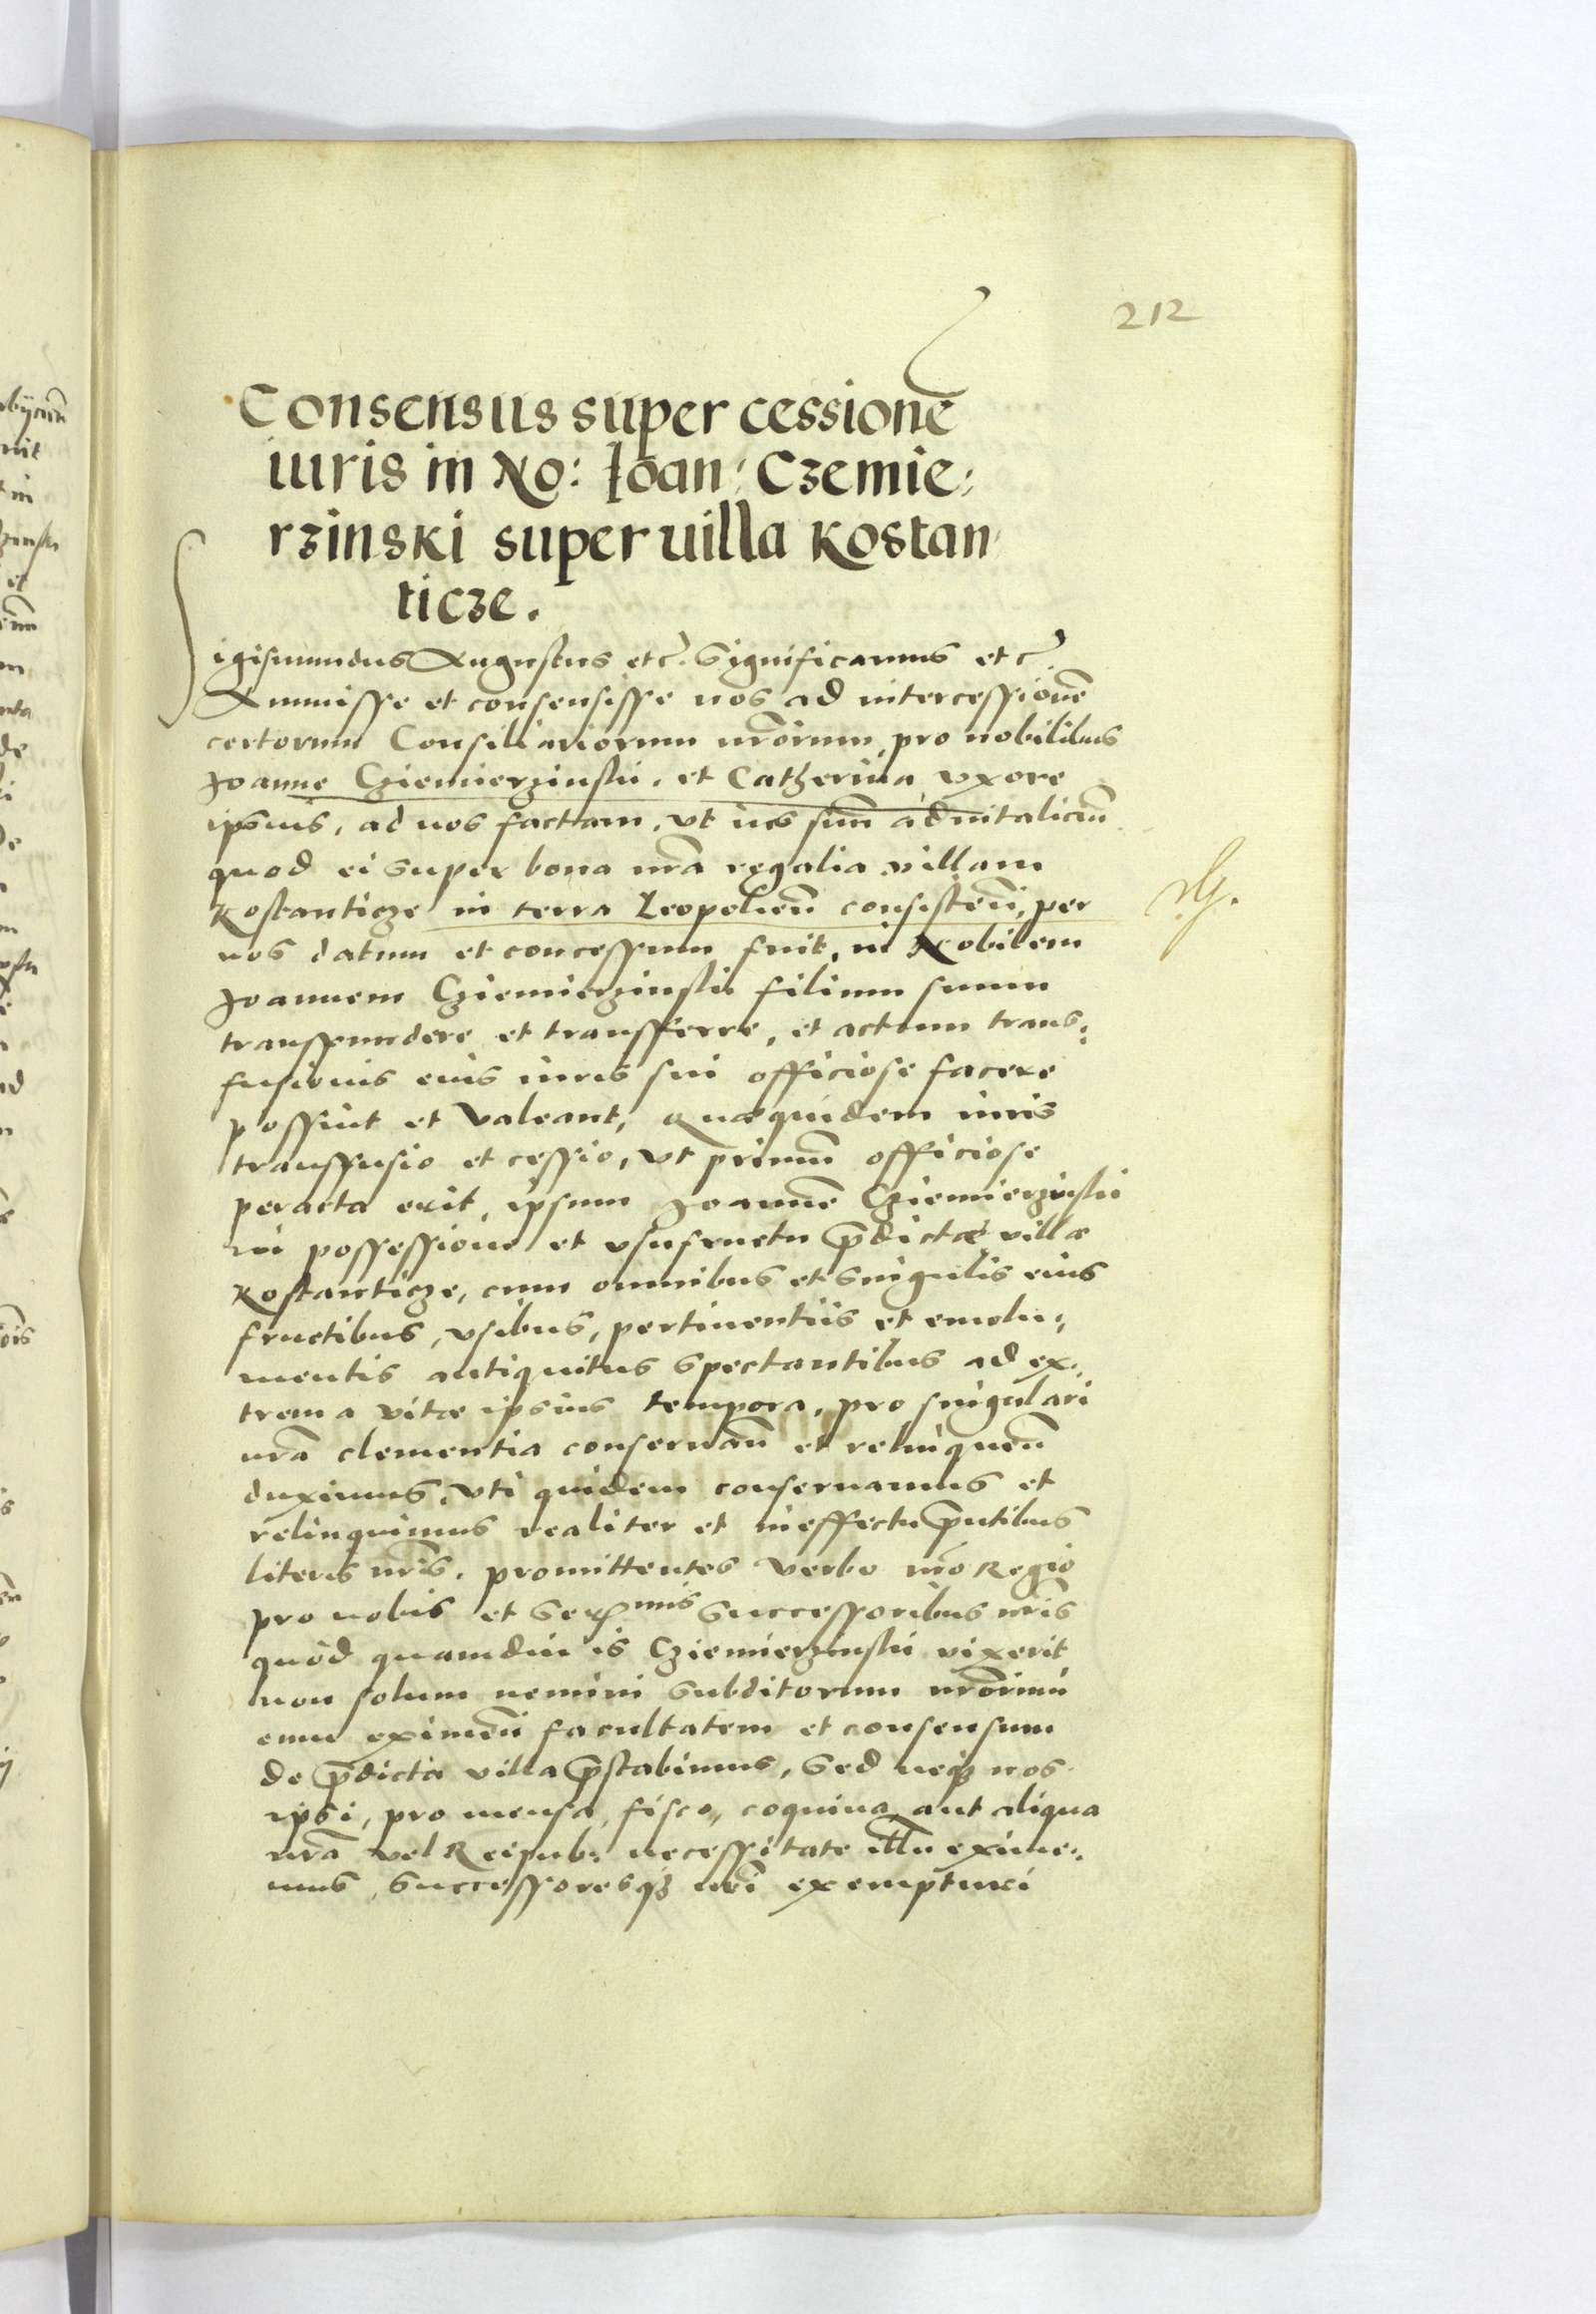 212
Consensus super cessionē
iuris in No: Ioan: Czemie:
rzinski super uilla Kostan
ticze.
Sigismundus Augustus etc̃. Significamus etc̃.
Annuisse et consensisse nos ad intercessionē
certorum Consiliariorum nr̃orum, pro nobilibus
Joanne Cziemierzinskii, et Catherina vxore
ipsius, ad nos factam, vt ius suũ aduitaliciũ
quod ei super bona nr̃a regalia villam
Kostanticze in terra Leopolieñ consisteñ, per
nos datum et concessum fuit, in Nobilem
Joannem Cziemierzinskii filium suum
transfundere et transferre, et actum trans:
fusionis eius iuris sui officiose facere
possint et valeant, Quæquidem iuris
transfusio et cessio, vt primũ officiose
peracta erit, ipsum Joannē Cziemierzinskii
in possessione et vsufructu p̃dictæ villæ
Kostanticze, cum omnibus et singulis eius
fructibus, vsibus, pertinentiis et emolu:
mentis antiquitus spectantibus ad ex:
trema vitæ ipsius tempora, pro singulari
nr̃a clementia conseruañ et relinqueñ
duximus, vti quidem conseruamus et
relinquimus realiter et in effectu p̃ntibus
literis nr̃is. promittentes verbo nr̃o Regio
pro nobis et Ser^mis Successoribus nr̃is
quòd quamdiu is Cziemierzinskii vixerit
non solum nemini subditorum nr̃orum
eum eximeñ facultatem et consensum
de p̃dicta villa p̃stabimus, sed neq3 nos
ipsi, pro mensa, fisco, coquina aut aliqua
nr̃a vel Reipub: necessitate illũ exime:
mus, Successoresq3 nr̃i exempturi